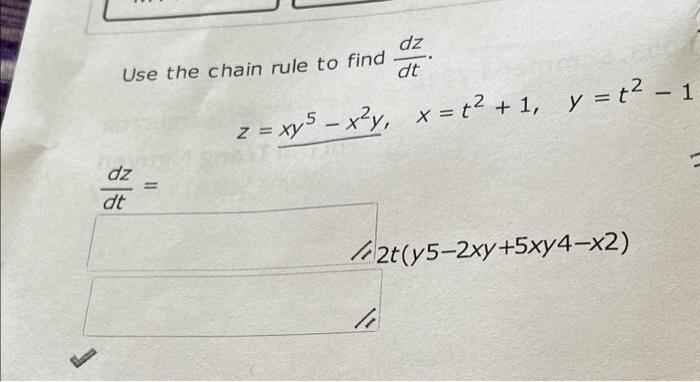 Use the chain rule to find dz/dt.
z = xy⁵ − x²y, x = t² + 1, y = t² − 1
dz/dt =
2t(y5−2xy+5xy4−x2)